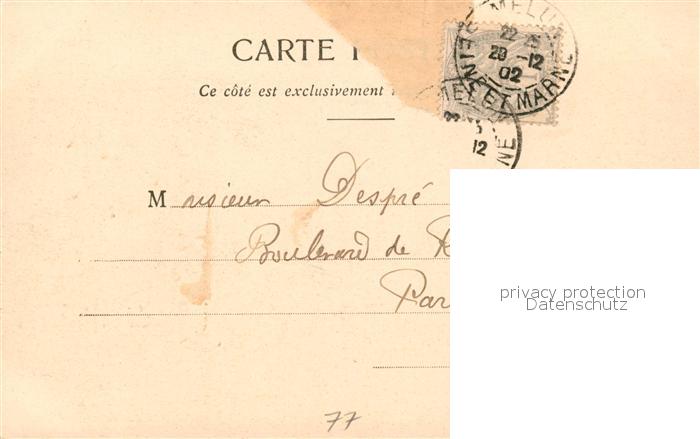 CARTE
Ce côté est exclusivement
MELUN
22
20 -12
02
SEINE ET MARNE
12
Monsieur Despré
Boulevard de
Par
privacy protection
Datenschutz
77